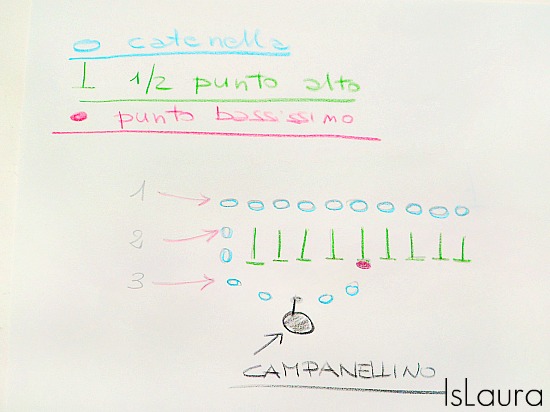 catenella
1/2 punto alto
punto bassissimo
1
2
3
CAMPANELLINO
IsLaura